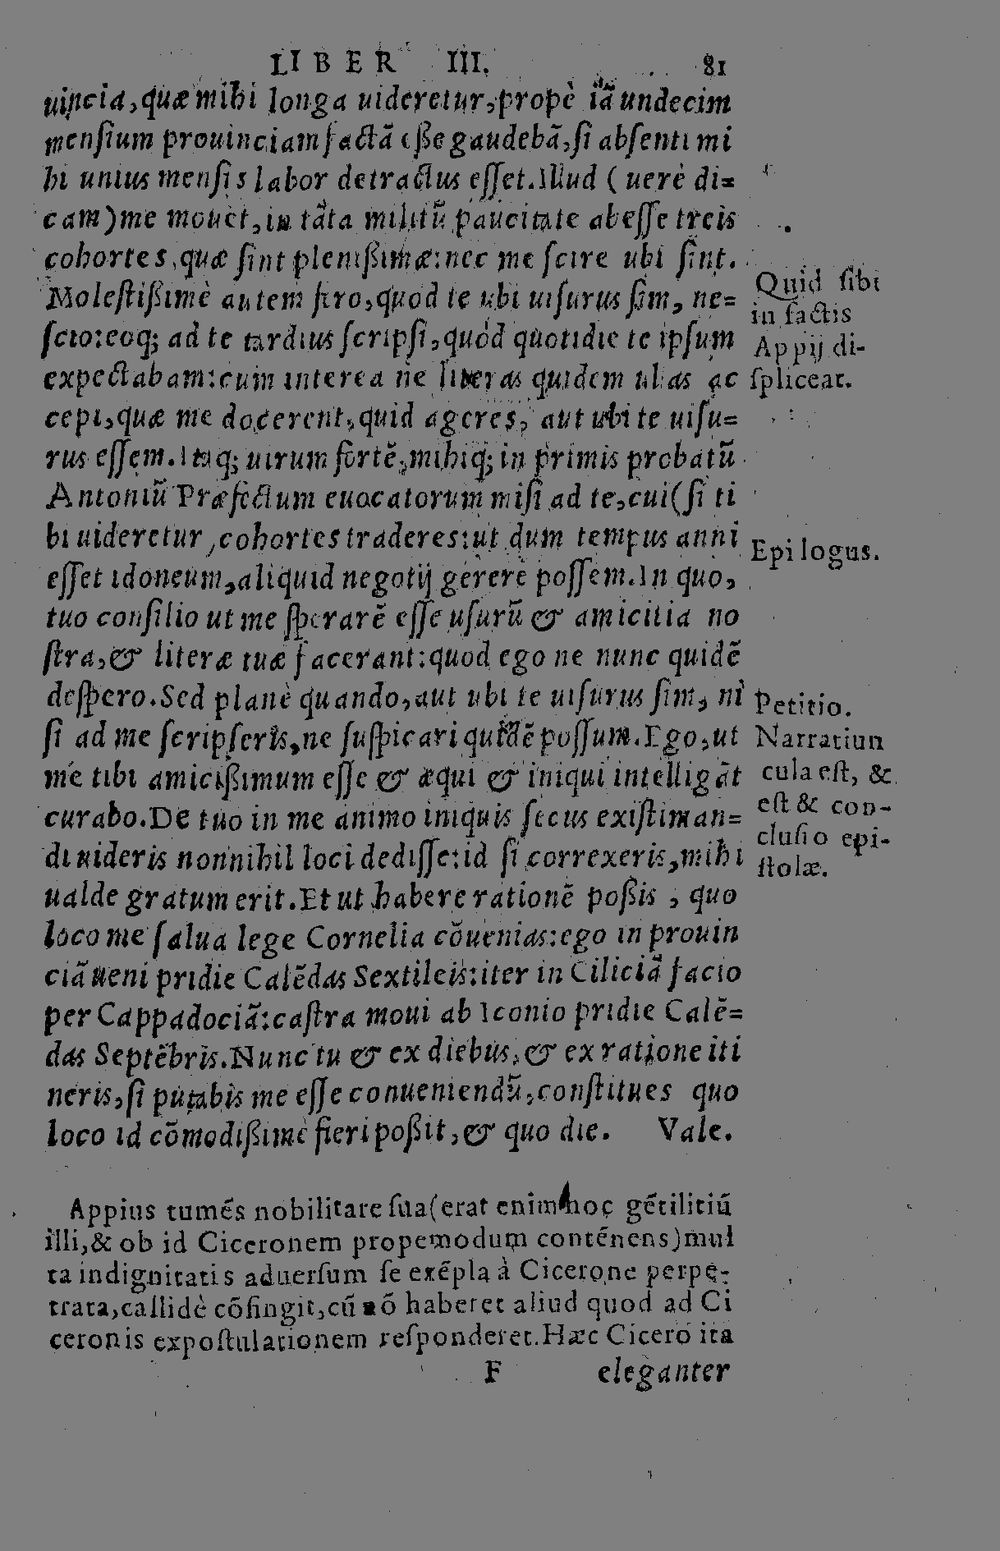 LIBER III. 81
uincia, quæ mihi longa uideretur, propè iā undecim
mensium prouinciam factā eße gaudebā, si absenti mi
hi unius mensis labor detractus esset. Illud (uerè di=
cam) me mouet, in tāta militū paucitate abesse treis
cohortes, quæ sint plenißimæ: nec me scire ubi sint.
Molestißimè autem fero, quod te ubi uisurus sim, ne=
scio: eoq; ad te tardius scripsi, quòd quotidie te ipsum
expectabam: cum interea ne literas quidem ullas ac
cepi, quæ me docerent, quid ageres, aut ubi te uisu=
rus essem. Itaq; uirum fortē, mihiq; in primis probatū
Antoniū Præfectum euocatorum misi ad te, cui (si ti
bi uideretur, cohortes traderes: ut dum tempus anni
esset idoneum, aliquid negotij gerere possem. In quo,
tuo consilio ut me sperarē esse usurū & amicitia no
stra, & literæ tuæ facerant: quod ego ne nunc quidē
despero. Sed planè quando, aut ubi te uisurus sim, ni
si ad me scripseris, ne suspicari quidē possum. Ego, ut
me tibi amicißimum esse & æqui & iniqui intelligāt
curabo. De tuo in me animo iniquis secus existiman=
di uideris nonnihil loci dedisse: id si correxeris, mihi
ualde gratum erit. Et ut habere rationē poßis, quo
loco me salua lege Cornelia cōuenias: ego in prouin
ciā ueni pridie Calēdas Sextileis: iter in Ciliciā facio
per Cappadociā: castra moui ab Iconio pridie Calē=
das Septēbris. Nunc tu & ex diebus, & ex ratione iti
neris, si putabis me esse conueniendū, constitues quo
loco id cōmodißimè fieri poßit, & quo die. Vale.
Quid sibi
in factis
Appij di-
spliceat.
Epilogus.
Petitio.
Narratiun
cula est, &
est & con-
clusio epi-
stolæ.
Appius tumēs nobilitate sua (erat enim hoc gētilitiū
illi, & ob id Ciceronem propemodum contēnens) mul
ta indignitatis aduersum se exēpla à Cicerone perpe-
trata, callidè cōfingit, cū nō haberet aliud quod ad Ci
ceronis expostulationem responderet. Hæc Cicero ita
F eleganter